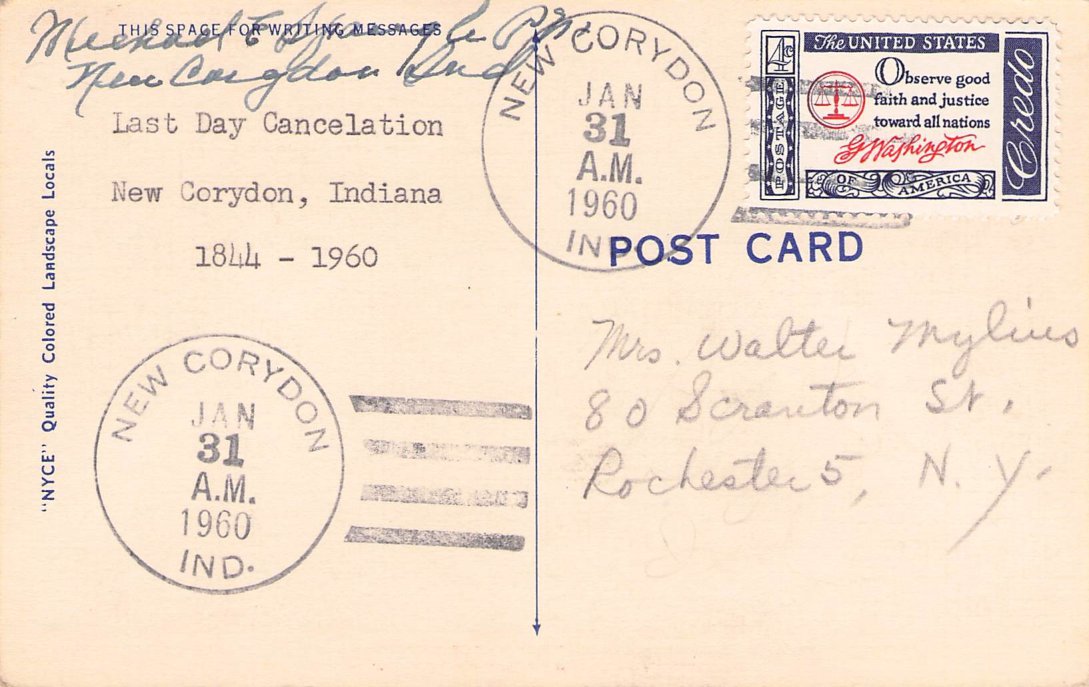 THIS SPACE FOR WRITING MESSAGES
Michael E
New Corydon Ind
Last Day Cancelation
New Corydon, Indiana
1844 - 1960
"NYCE" Quality Colored Landscape Locals
NEW CORYDON
JAN
31
A.M.
1960
IND.
NEW CORYDON
JAN
31
A.M.
1960
IND.
4c
POSTAGE
The UNITED STATES
OF AMERICA
Observe good
faith and justice
toward all nations
G Washington
Credo
POST CARD
Mrs. Walter Mylius
80 Scranton St.
Rochester 5, N. Y.